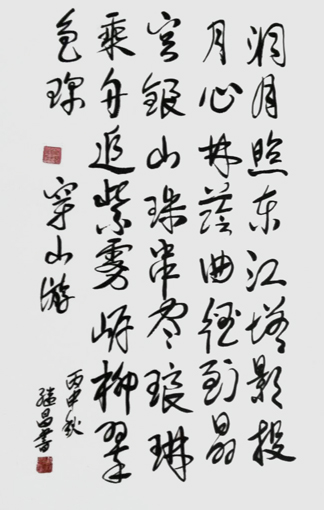 洞月照东江塔影投
月心林荫曲径到晶
宫银山珠串零琅琳
乘舟追紫雾岸柳翠
色琛
穿山游
丙申秋
继昌书